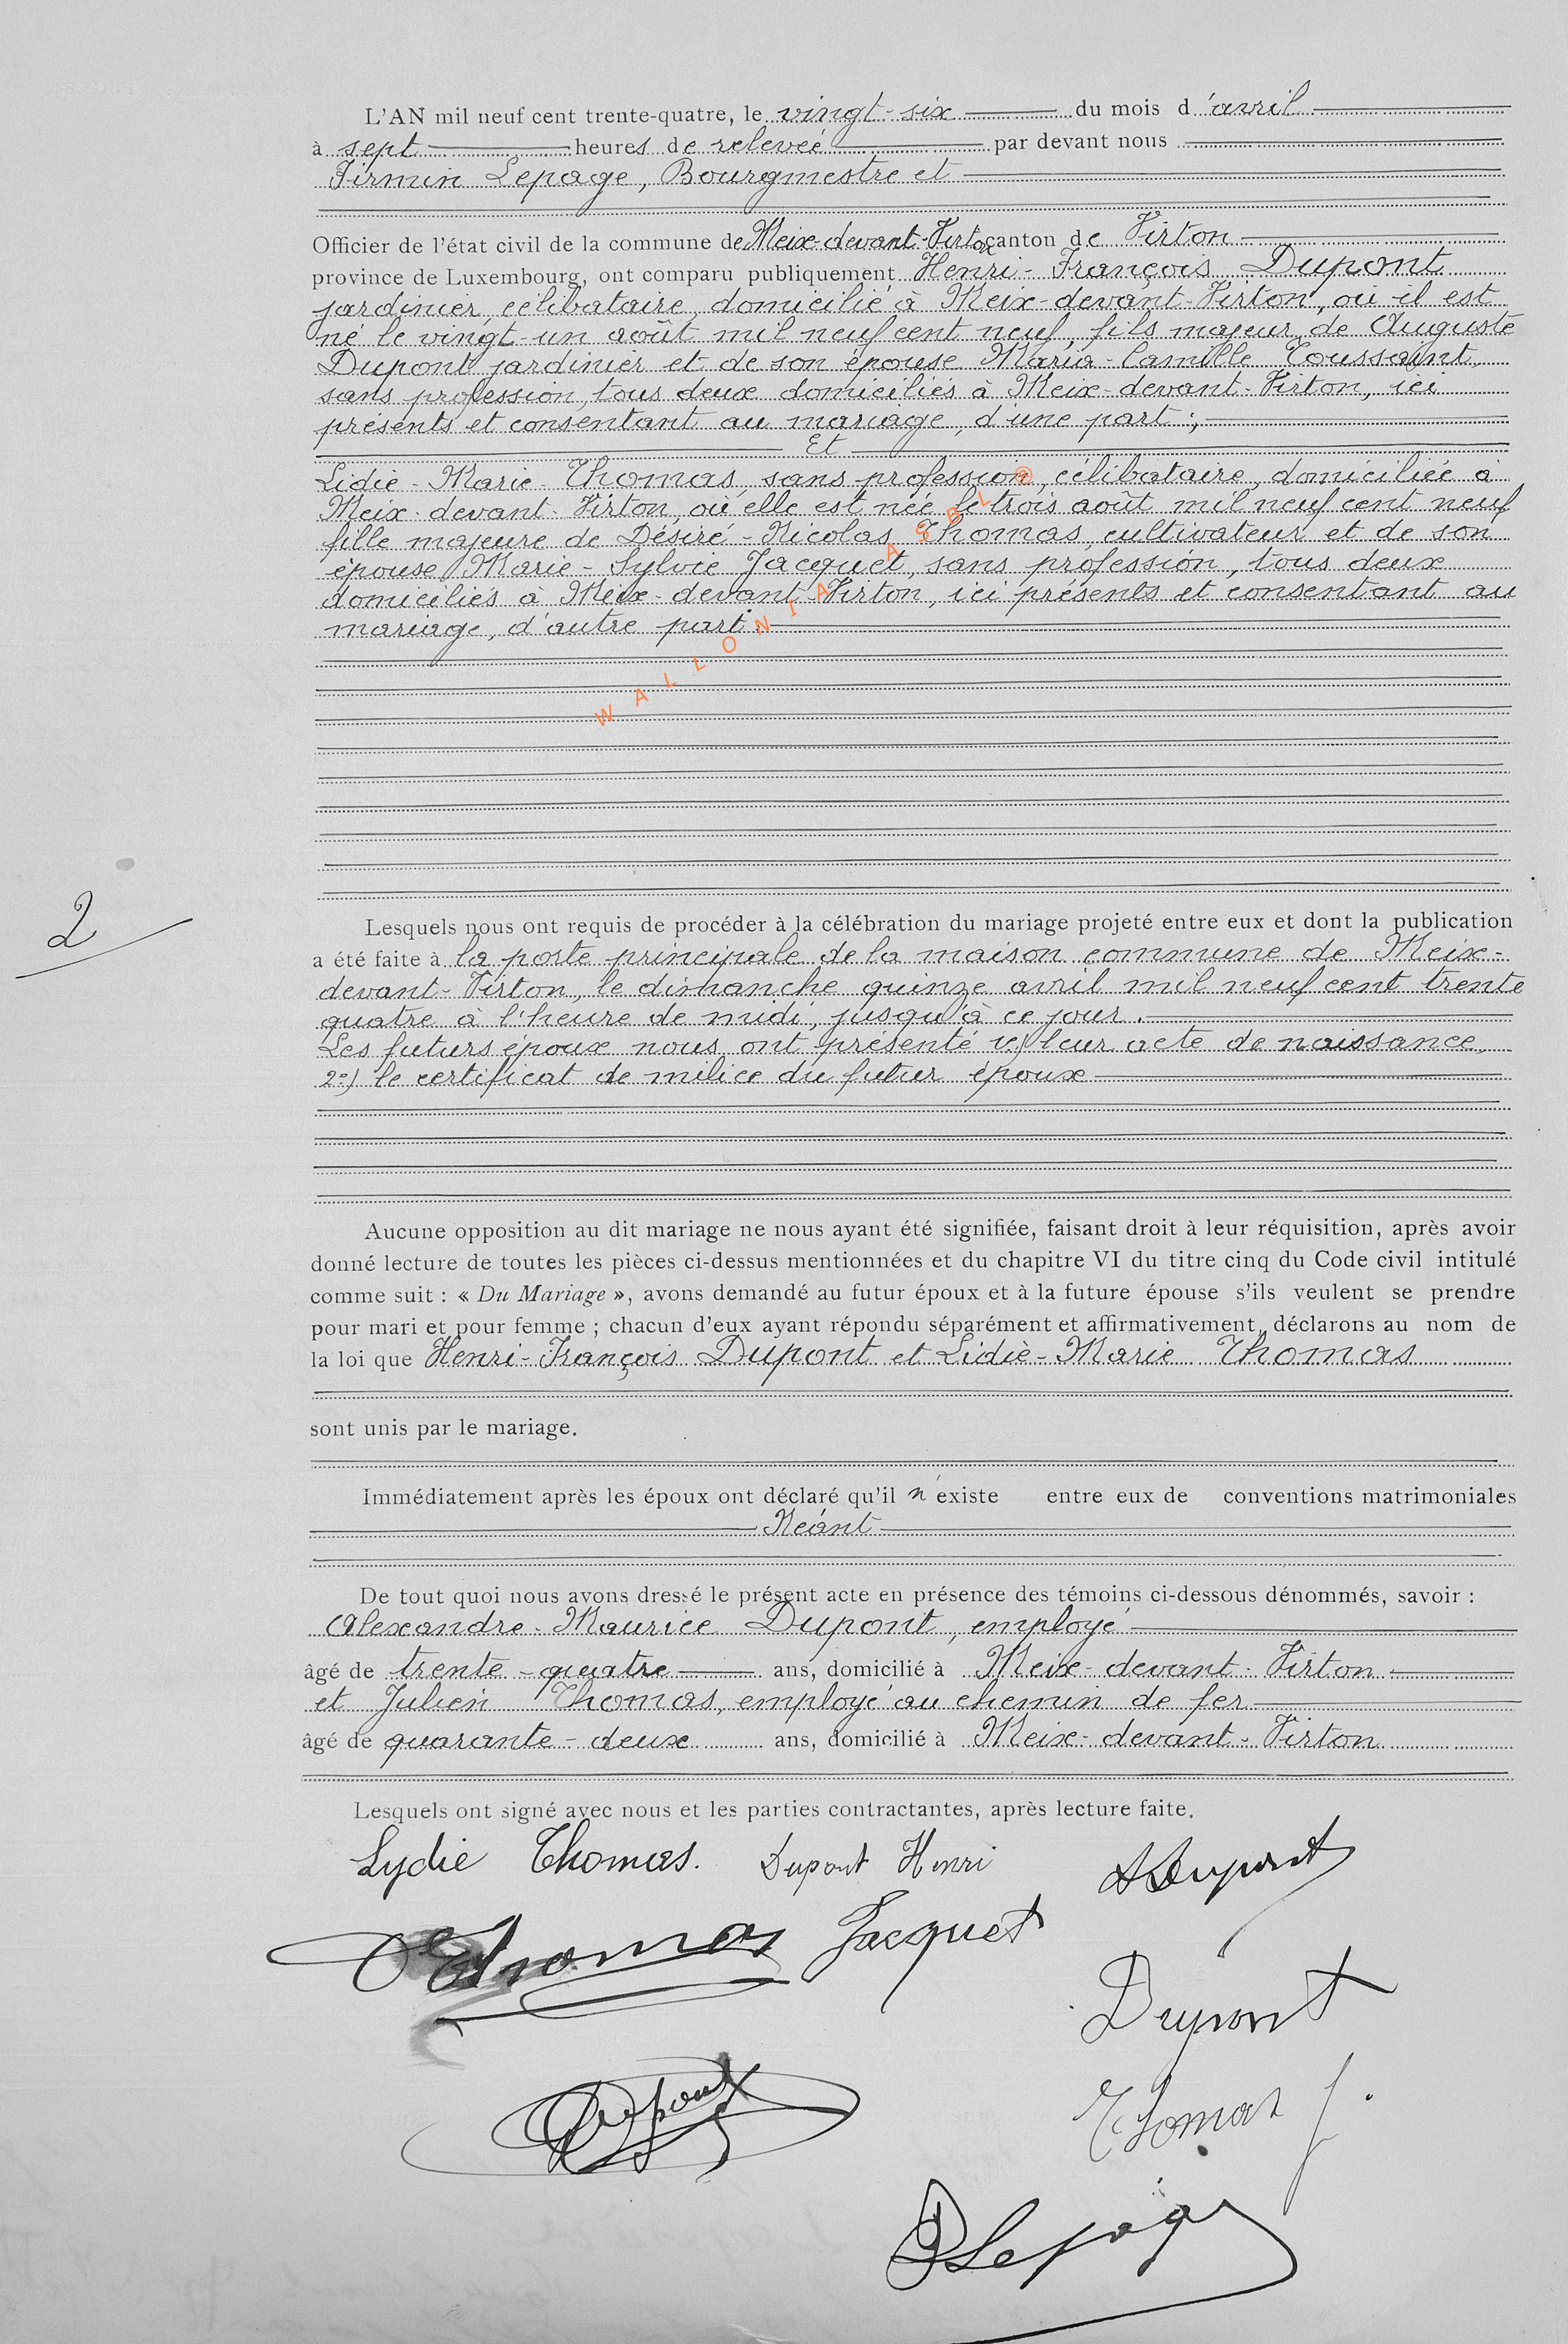 L'AN mil neuf cent trente-quatre, le vingt-six du mois d'avril
à sept heures de relevée par devant nous
Firmin Lepage, Bourgmestre et
Officier de l'état civil de la commune de Meix-devant-Virton canton de Virton
province de Luxembourg, ont comparu publiquement Henri-François Dupont
jardinier, célibataire, domicilié à Meix-devant-Virton, où il est
né le vingt-un août mil neuf cent neuf, fils majeur de Auguste
Dupont jardinier et de son épouse Maria-Camille Toussaint,
sans profession, tous deux domiciliés à Meix-devant-Virton, ici
présents et consentant au mariage, d'une part;
Et
Lidie-Marie Thomas, sans profession, célibataire, domiciliée à
Meix-devant-Virton, où elle est née le trois août mil neuf cent neuf
fille majeure de Désiré-Nicolas Thomas, cultivateur et de son
épouse Marie-Sylvie Jacquet, sans profession, tous deux
domiciliés à Meix-devant-Virton, ici présents et consentant au
mariage, d'autre part.
WALLONIA ASBL ®
2
Lesquels nous ont requis de procéder à la célébration du mariage projeté entre eux et dont la publication
a été faite à la porte principale de la maison commune de Meix-
devant-Virton, le dimanche quinze avril mil neuf cent trente
quatre à l'heure de midi, jusqu'à ce jour.
Les futurs époux nous ont présenté 1e) leur acte de naissance,
2e) le certificat de milice du futur époux
Aucune opposition au dit mariage ne nous ayant été signifiée, faisant droit à leur réquisition, après avoir
donné lecture de toutes les pièces ci-dessus mentionnées et du chapitre VI du titre cinq du Code civil intitulé
comme suit : « Du Mariage », avons demandé au futur époux et à la future épouse s'ils veulent se prendre
pour mari et pour femme ; chacun d'eux ayant répondu séparément et affirmativement, déclarons au nom de
la loi que Henri-François Dupont et Lidie-Marie Thomas
sont unis par le mariage.
Immédiatement après les époux ont déclaré qu'il n'existe entre eux de conventions matrimoniales
Néant
De tout quoi nous avons dressé le présent acte en présence des témoins ci-dessous dénommés, savoir :
Alexandre-Maurice Dupont, employé
âgé de trente-quatre ans, domicilié à Meix-devant-Virton
et Julien Thomas, employé au chemin de fer
âgé de quarante-deux ans, domicilié à Meix-devant-Virton
Lesquels ont signé avec nous et les parties contractantes, après lecture faite.
Lydie Thomas. Dupont Henri ADupont
Thomas Jacquet
Dupont
Dupont
Thomas J.
Lepage